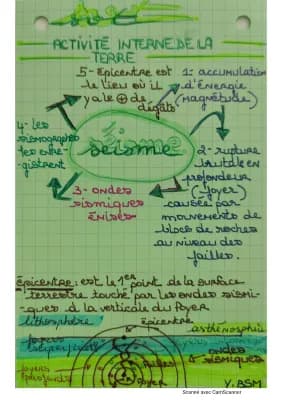 ACTIVITÉ INTERNE DE LA
TERRE
5- Épicentre est
le lieu où il
y a le ⊕ de
dégâts
1- accumulation
d'énergie
(magnitude)
séisme
4- les
sismographes
les enre-
gistrent
2- rupture
brutale en
profondeur
(foyer)
causée par
mouvements de
blocs de roches
au niveau des
failles.
3- ondes
sismiques
émises
Épicentre : est le 1er point de la surface
terrestre touché par les ondes sismi-
ques à la verticale du foyer
lithosphère
épicentre
asthénosphère
foyers
foyers
profonds
failles
foyer
ondes
sismiques
Y. BSM
Scanné avec CamScanner